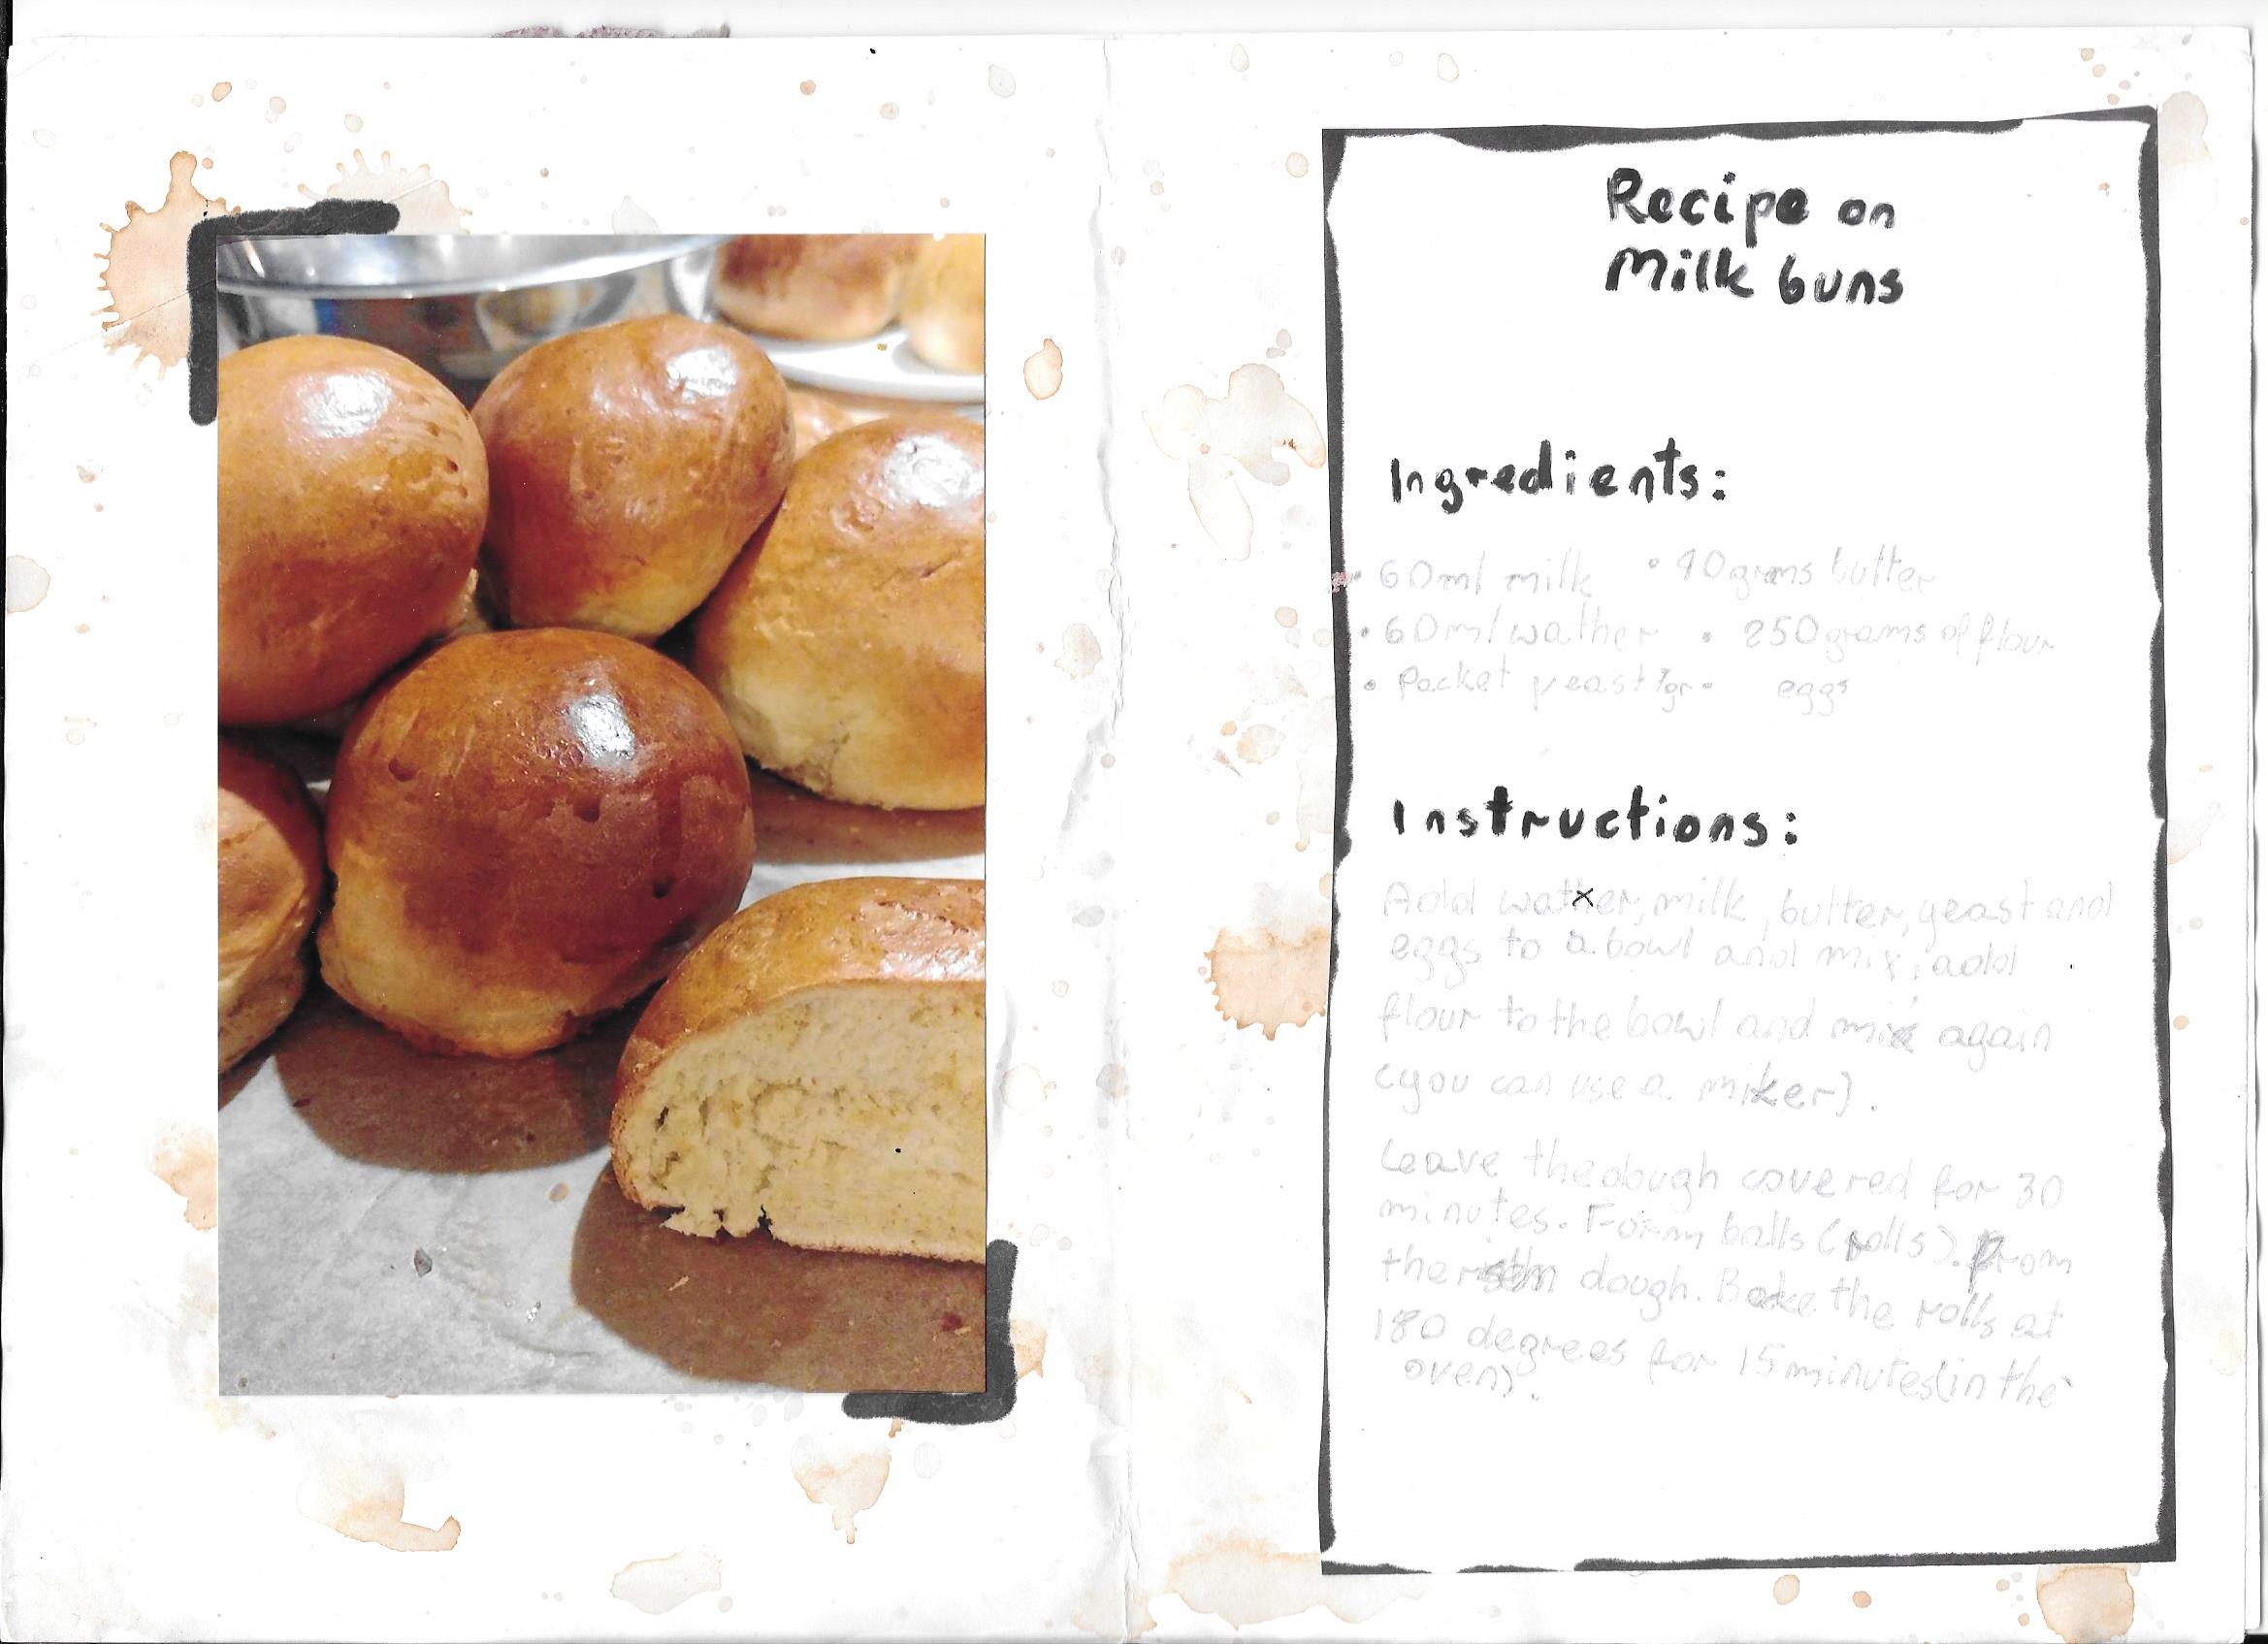 Recipe on
Milk buns
Ingredients:
• 60ml milk • 40grams butter
• 60ml wather • 250grams of flour
• Packet yeast 7gr • eggs
Instructions:
Add wather, milk, butter, yeast and
eggs to a bowl and mix, add
flour to the bowl and mix again
(you can use a mixer).
Leave the dough covered for 30
minutes. Form balls (rolls). From
the dough. Bake the rolls at
180 degrees for 15 minutes (in the
oven).